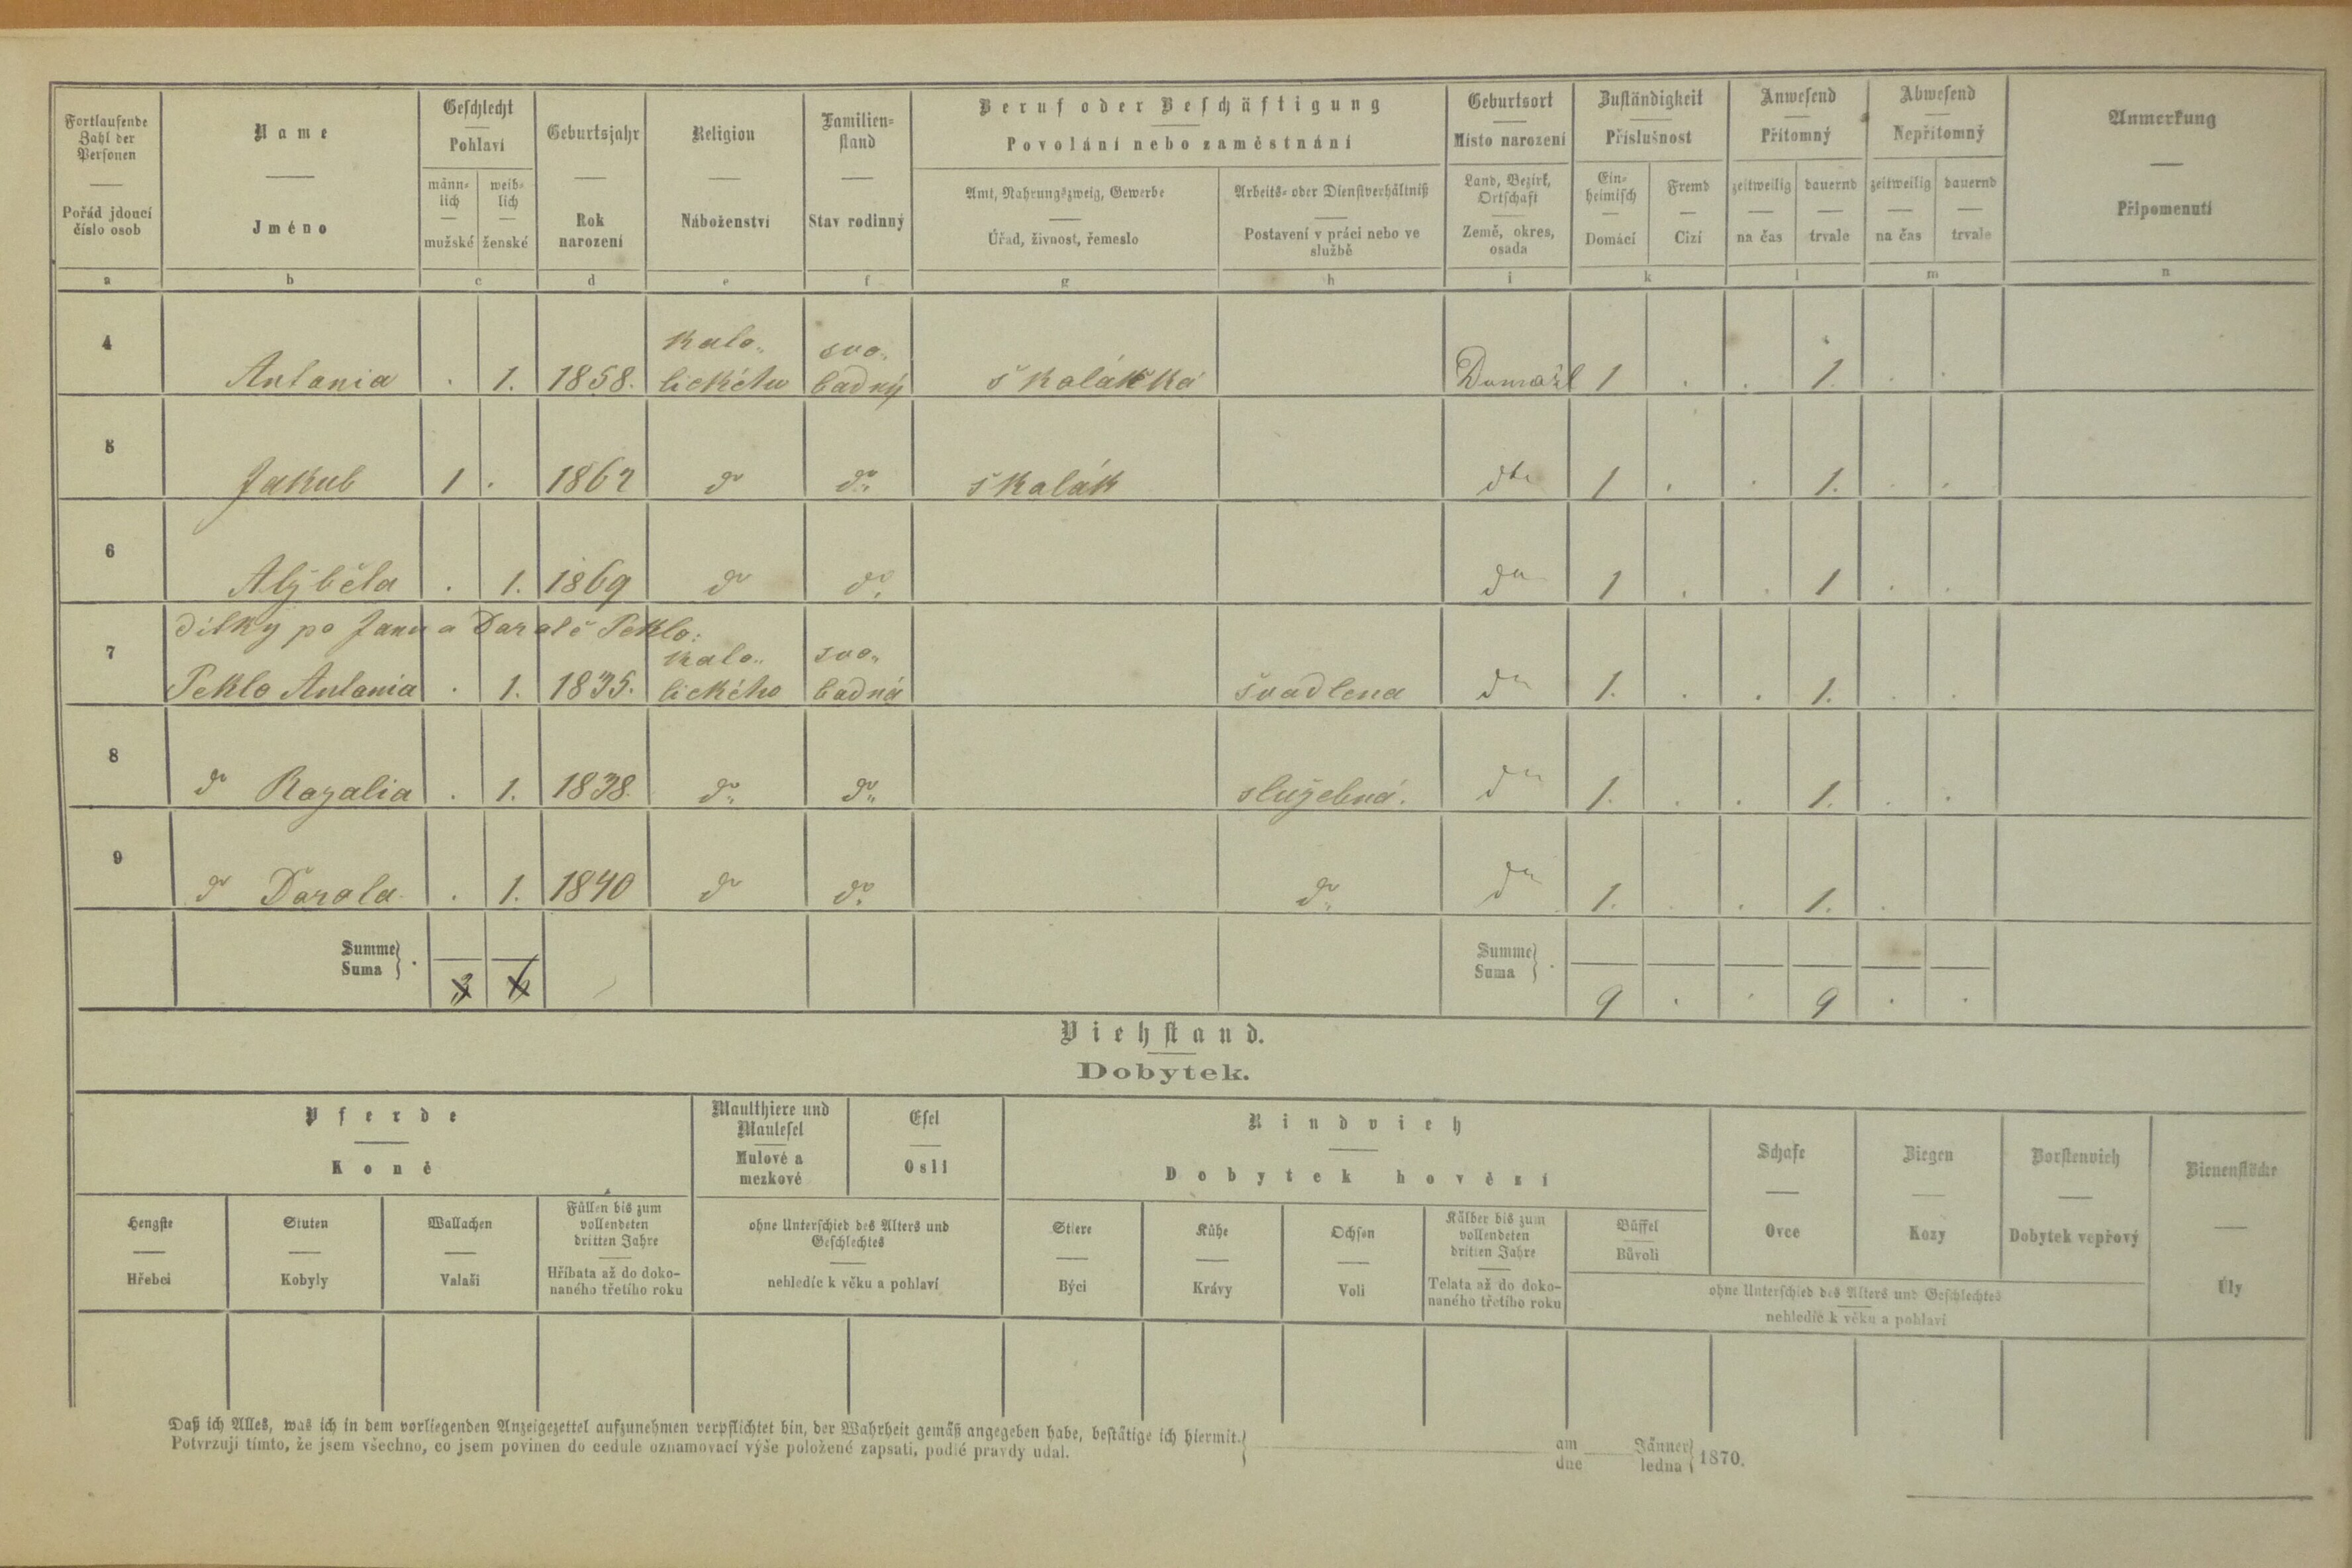 Fortlaufende Zahl der Personen
Pořád jdoucí číslo osob
Name
Jméno
Geschlecht
Pohlaví
männlich
mužské
weiblich
ženské
Geburtsjahr
Rok narození
Religion
Náboženství
Familienstand
Stav rodinný
Beruf oder Beschäftigung
Povolání nebo zaměstnání
Amt, Nahrungszweig, Gewerbe
Úřad, živnost, řemeslo
Arbeits- oder Dienstverhältniß
Postavení v práci nebo ve službě
Geburtsort
Místo narození
Land, Bezirk, Ortschaft
Země, okres, osada
Zuständigkeit
Příslušnost
Einheimisch
Domácí
Fremd
Cizí
Anwesend
Přítomný
zeitweilig
na čas
dauernd
trvale
Abwesend
Nepřítomný
zeitweilig
na čas
dauernd
trvale
Anmerkung
Připomenutí
a b c d e f g h i k l m n
4 Antonia . 1. 1858. kato„ lického svo„ bodný školáčka Domažl 1 . . 1. . .
5 Jakub 1 . 1862 do do školák dto 1 . . 1. . .
6 Alžběta . 1. 1869 do do do 1 . . 1 . .
dítky po Janu a Dorotě Peklo:
7 Peklo Antonia . 1. 1835. kato„ lického svo„ bodná švadlena do 1. . . 1. . .
8 do Rozalia . 1. 1838. do do služebná. do 1. . . 1. . .
9 do Dorota . 1. 1840 do do do do 1. . . 1. .
Summe
Suma
Summe
Suma
9 . . 9 . .
Viehstand.
Dobytek.
Pferde
Koně
Hengste
Hřebci
Stuten
Kobyly
Wallachen
Valaši
Füllen bis zum vollendeten dritten Jahre
Hříbata až do dokonaného třetího roku
Maulthiere und Maulesel
Mulové a mezkové
Esel
Osli
ohne Unterschied des Alters und Geschlechtes
nehledíc k věku a pohlaví
Rindvieh
Dobytek hovězí
Stiere
Býci
Kühe
Krávy
Ochsen
Voli
Kälber bis zum vollendeten dritten Jahre
Telata až do dokonaného třetího roku
Büffel
Bůvoli
Schafe
Ovce
Ziegen
Kozy
Borstenvieh
Dobytek vepřový
ohne Unterschied des Alters und Geschlechtes
nehledíc k věku a pohlaví
Bienenstöcke
Úly
Daß ich Alles, was ich in dem vorliegenden Anzeigezettel aufzunehmen verpflichtet bin, der Wahrheit gemäß angegeben habe, bestätige ich hiermit.
Potvrzuji tímto, že jsem všechno, co jsem povinen do cedule oznamovací výše položené zapsati, podlé pravdy udal.
am Jänner
dne ledna 1870.